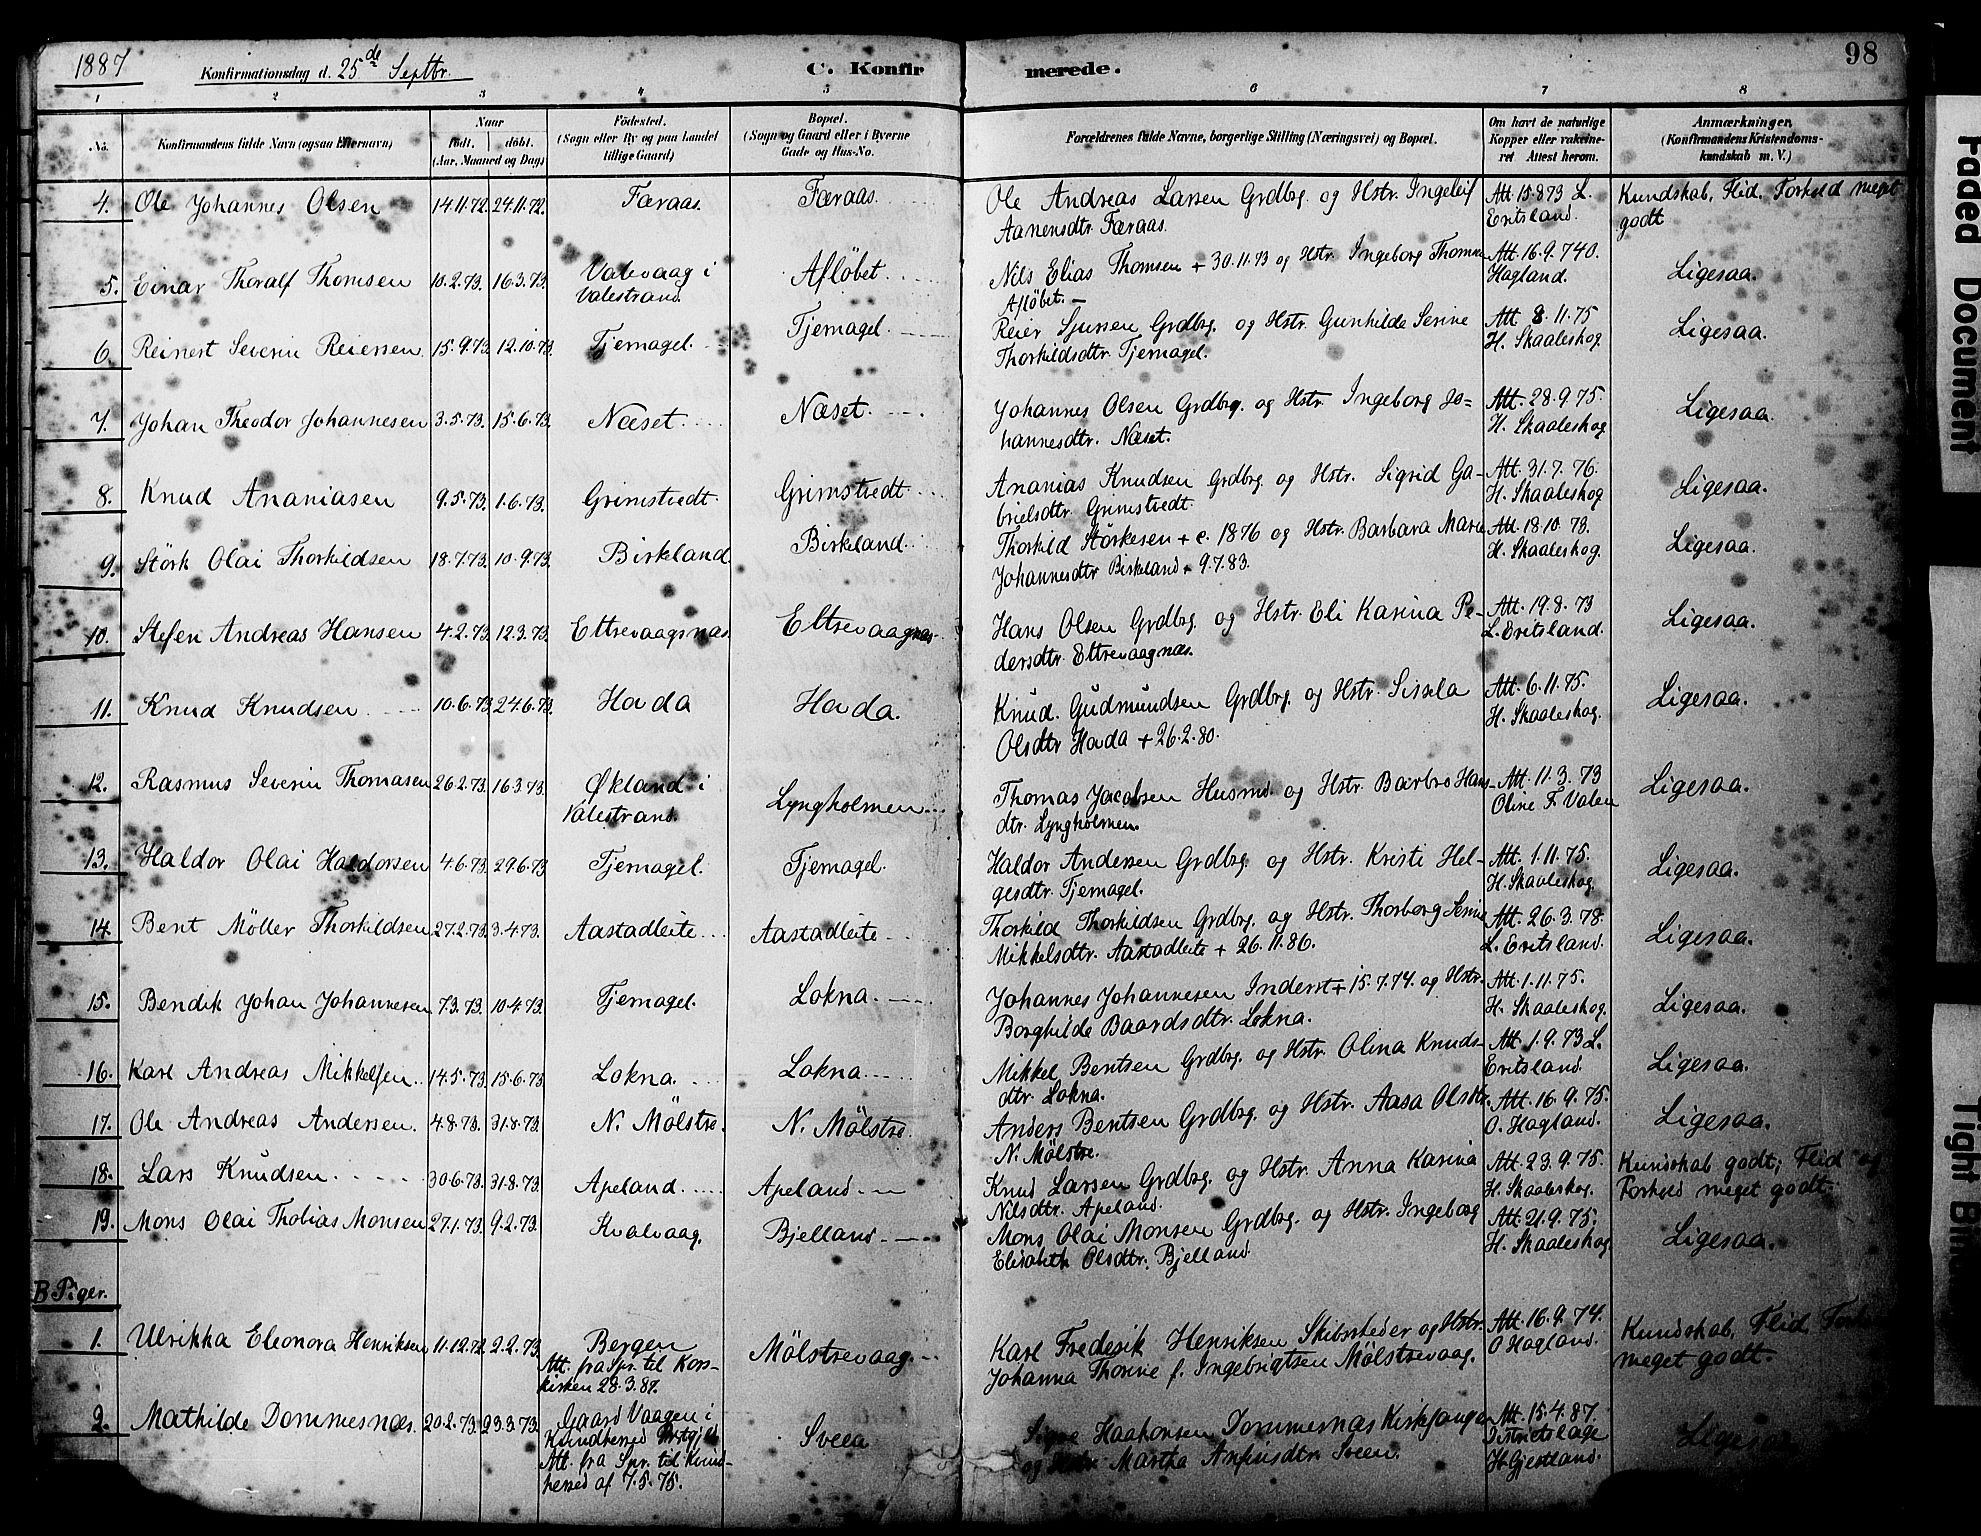 1887 Konfirmationsdag d. 25de Septbr. C. Konfir merede. 98
1 2 3 4 5 6 7 8
No. Konfirmandens fulde Navn (ogsaa Efternavn) Naar født. døbt. (Aar, Maaned og Dag) Fødested. (Sogn eller By og paa Landet tillige Gaard) Bopæl. (Sogn og Gaard eller i Byerne Gade og Hus-No. Forældrenes fulde Navne, borgerlige Stilling (Næringsvei) og Bopæl. Om havt de naturlige Kopper eller vakcineret Attest herom. Anmærkninger, (Konfirmandens Kristendomskundskab m. V.)
4. Ole Johannes Olsen 14.11.72. 24.11.72. Færaas. Færaas. Ole Andreas Larsen Grdbrg. og Hstr. Ingeleif Att 15.8 73 L. Kundskab, Flid, Forhold meget
Aanensdtr. Færaas. Eritsland. godt
5. Einar Thoralf Thomsen 10.2.73. 16.3.73. Valevaag i Afløbet. Nils Elias Thomsen + 30.11.73 og Hstr. Ingeborg Thomsen Att. 16.9.74 O. Ligesaa.
Valestrand. Afløbet. — Hagland.
6. Reinert Severin Reiersen 15.9.73. 12.10.73. Tjernagel. Tjernagel. Reier Sjursen Grdbrg. og Hstr. Gunhilde Serine Att 8.11.75 Ligesaa.
Thorkildsdtr. Tjernagel. H. Skaaleskog.
7. Johan Theodor Johannesen 3.5.73. 15.6.73. Næset. Næset. Johannes Olsen Grdbrg. og Hstr. Ingeborg Jo- Att. 28.9.75. Ligesaa.
hannesdtr. Næset. H. Skaaleskog.
8. Knud Ananiasen 9.5.73. 1.6.73. Grimstvedt. Grimstvedt. Ananias Knudsen Grdbrg og Hstr. Sigrid Ga- Att. 31.7.76. Ligesaa.
brielsdtr. Grimstvedt. H. Skaaleskog
9. Störk Olai Thorkildsen 18.7.73. 10.9.73. Birkeland. Birkeland. Thorkild Störkesen + c. 1876 og Hstr. Barbara Marie Att. 18.10.73. Ligesaa.
Johannesdtr Birkeland + 9.7.83. H. Skaaleskog.
10. Stefen Andreas Hansen 4.2.73. 12.3.73. Eltrevaagsnæs. Eltrevaagnæs. Hans Olsen Grdbrg og Hstr. Eli Karina Pe- Att. 19.8.73 Ligesaa.
dersdtr. Eltrevaagnæs. L. Eritsland.
11. Knud Knudsen 10.6.73. 24.6.73. Hovda Hovda. Knud Gudmundsen Grdbrg. og Hstr. Sissela Att. 6.11.75. Ligesaa.
Olsdtr Hovda + 26.2.80. H. Skaaleskog.
12. Rasmus Severin Thomasen 26.2.73. 16.3.73. Økland i Lyngholmen. Thomas Jacobsen Husmd. og Hstr. Barbro Hans- Att. 11.3.73 Ligesaa.
Valestrand. dtr. Lyngholmen. Oline F. Valen
13. Haldor Olai Haldorsen 4.6.73. 29.6.73 Tjernagel. Tjernagel. Haldor Andersen Grdbrg. og Hstr. Kristi Hel- Att. 1.11.75. Ligesaa.
gesdtr. Tjernagel. H. Skaaleskog.
14. Bent Möller Thorkildsen 27.2.73. 3.4.73. Aastadleite. Aastadleite. Thorkild Thorkildsen Grdbrg. og Hstr. Thorborg Serine Att. 26.3.78. Ligesaa.
Mikkelsdtr. Aastadleite + 26.11.86. L. Eritsland.
15. Bendik Johan Johannesen 7.3.73. 10.4.73. Tjernagel. Lokna. Johannes Johannesen Inderst + 15.7.74. og Hstr. Att. 1.11.75. Ligesaa.
Borghilde Baardsdtr. Lokna. H. Skaaleskog.
16. Karl Andreas Mikkelsen 14.5.73. 15.6.73 Lokna. Lokna. Mikkel Bentsen Grdbrg. og Hstr. Olina Knuds- Att. 1.9.73 L. Ligesaa.
dtr. Lokna. Eritsland.
17. Ole Andreas Andersen. 4.8.73. 31.8.73. N. Mölstre. N. Mölstre. Anders Bentsen Grdbrg. og Hstr. Aasa Olsdtr. Att. 16.9.75. Ligesaa.
N. Mölstre. O. Hagland.
18. Lars Knudsen 30.6.73. 31.8.73. Apeland. Apeland. Knud Larsen Grdbrg. og Hstr. Anna Karina Att. 23.9.75. Kundskab godt; Flid og
Nilsdtr. Apeland. H. Skaaleskog. Forhold meget godt.
19. Mons Olai Thobias Monsen 27.1.73. 9.2.73. Kvalvaag. Bjelland. Mons Olai Monsen Grdbrg. og Hstr. Ingeborg Att. 21.9.75. Ligesaa.
Elisabeth Olsdtr. Bjelland. H. Skaaleskog
B Piger.
1. Ulrikka Eleonora Henriksen 11.12.72. 2.2.73. Bergen Mölstrevaag. Karl Frederik Henriksen Skibsreder og Hstr. Att. 16.9.74. Kundskab, Flid, Forh
Att. fra Spr. til Kors- Johanna Thorine f. Ingebrigtsen Mölstrevaag. O Hagland. meget godt.
kirken 28.3.87.
2. Mathilde Dommesnæs. 20.2.73. 23.3.73. Gaard Vaagen i Sveen Haakonsen Dommesnæs Kirkesanger Att. 15.4.87. Ligesaa
Kvindherred Prstgjld. og Hstr Martha Anfinsdtr. Sveen. Districtslæge
Att. fra Spr. til Kvind- H. Gjestland.
herred af 7.5.75.
Faded Document
Tight Bin